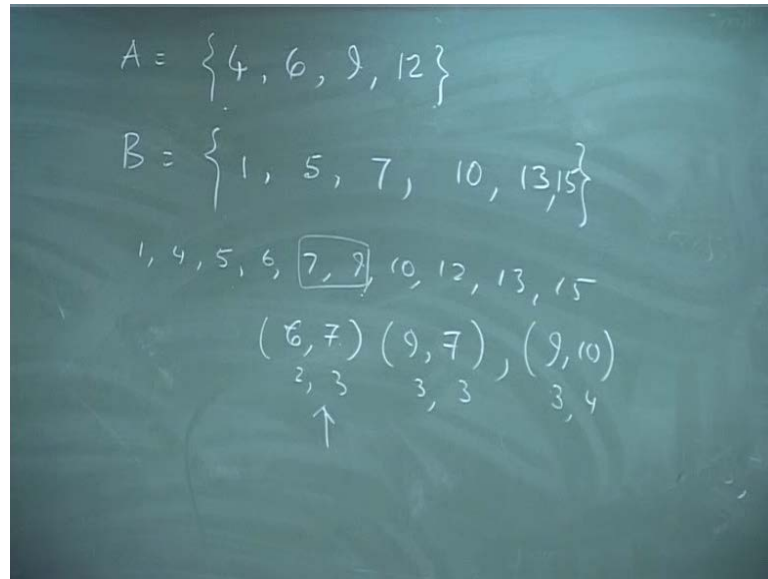 A = {4, 6, 9, 12}
B = {1, 5, 7, 10, 13, 15}
1, 4, 5, 6, 7, 9, 10, 12, 13, 15
(6, 7) (9, 7), (9, 10)
2, 3 3, 3 3, 4
↑